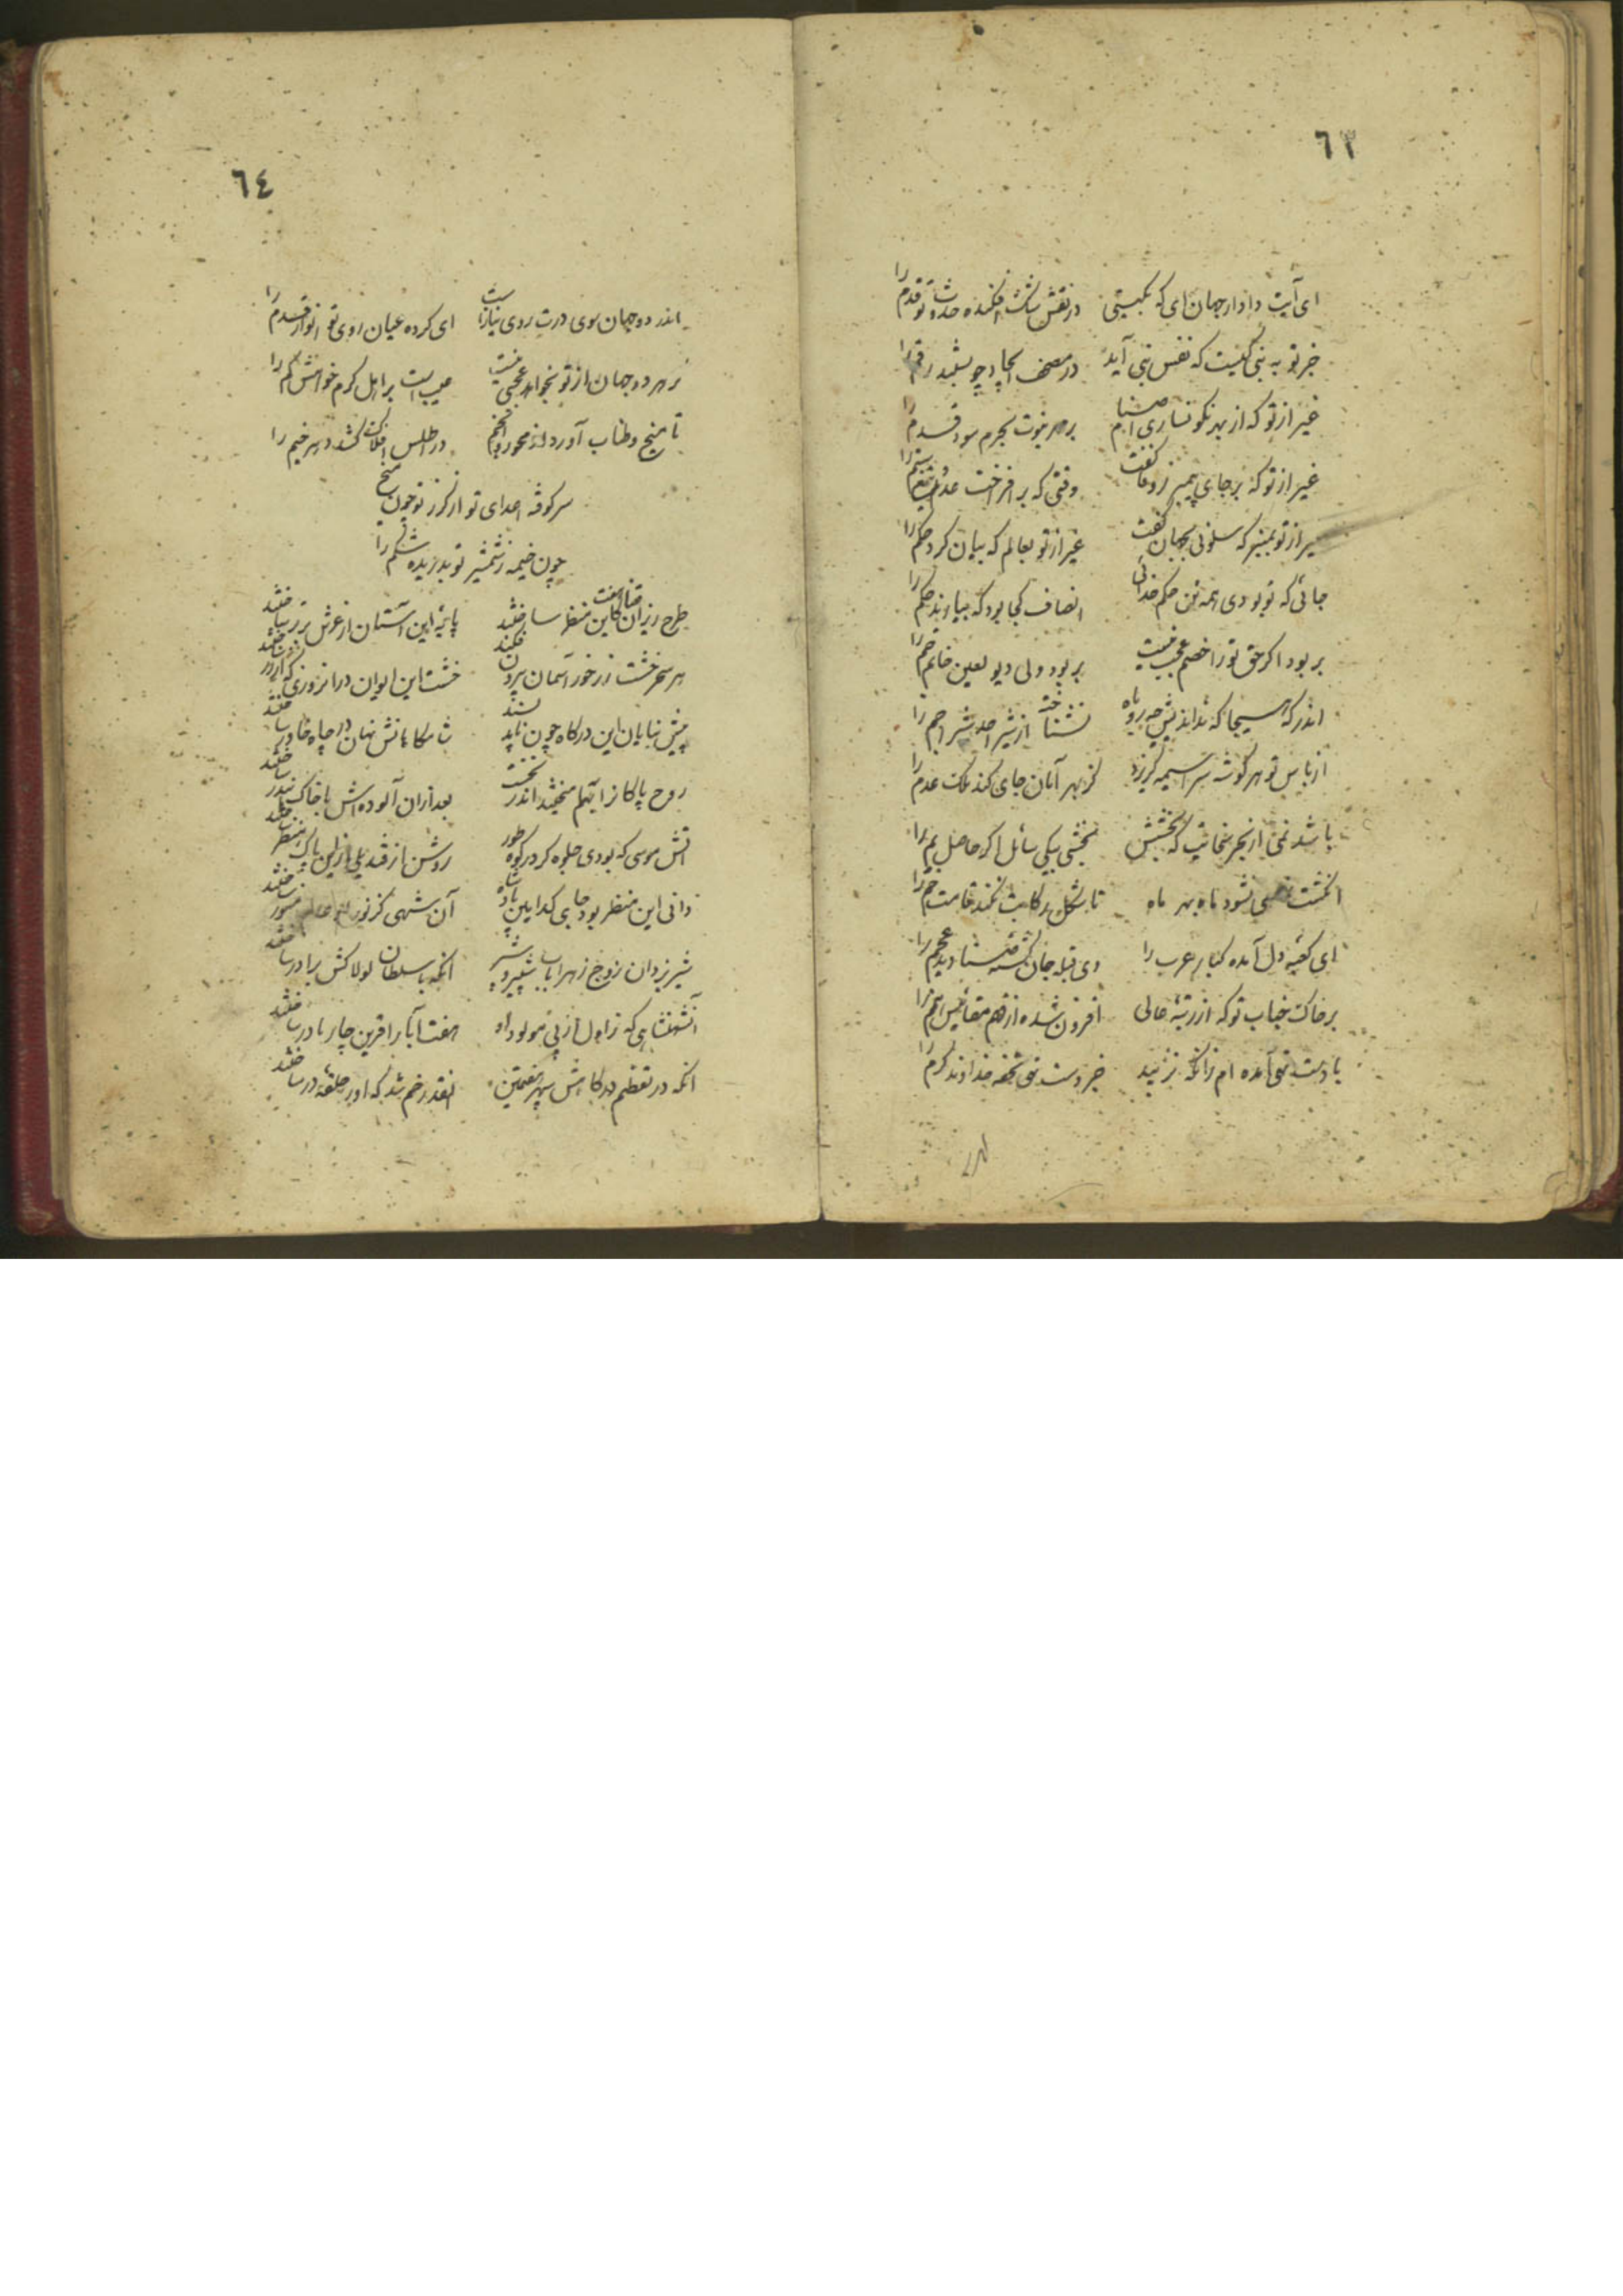 ٦٣
ای آیت دادار جهان ای که بگیتی در نقش افکنده حدوث تو قدم را
جز تو به نبی کیست که نفس نبی آید در مصحف ایجاد چو رقم را
غیر از تو که از بهر نگونساری اصنام بر مهر نبوت بحرم سود قدم را
غیر از تو که بر جای پیمبر ز وفا خفت وقتی که بر افراخت عدو تیغ ستم را
غیر از تو بمنبر که سلونی بجهان گفت غیر از تو بعالم که بیان کرد حکم را
جائی که تو بودی همه تن حکم خدائی انصاف کجا بود که بیارند حکم را
بربود اگر حق تو را خصم عجب نیست بربود ولی دیو لعین خاتم جم را
روباه نشناخته از شیر اجم را
از باس تو هر گوشه سراسیمه گریزد کز بهر امان جای کند ملک عدم را
باشد نمی از بحر سخائیت که بخشش بخشی بیکی سائل اگر حاصل یم را
انگشت نمی نشود ماه بهر ماه تا شکل رکابت نکند قامت خم را
ای کعبه دل آمده کبار عرب را وی قبله جان گشته صنادید عجم را
بر خاک جناب تو که از رتبهٔ عالی افزون شده از فهم مقائیس امم را
با دست تهی آمده ام زانکه نزیبد جز دست تهی تحفه خداوند کرم را
٦٤
اندر دو جهان سوی درت روی نیاز است ای کرده عیان روی تو انوار قدم را
گر هر دو جهان از تو بخواهد عجبی نیست عیب است بر اهل کرم خواهش کم را
تا میخ و طناب آورد از محور و انجم در اطلس افلاک کشد دهر خیم را
سرکوفته اعدای تو از گرز تو چون میخ
چون خیمه ز شمشیر تو بدریده شکم را
طرح ریزان قضا کاین منظر ساختند پایهٔ این آستان از عرش برتر ساختند
هر سحر خشت زر خور آسمان بیرون فکند خشت این ایوان در آنروزی که از زر ساختند
پیش بنایان این درگاه چون ناید پسند شامگاهانش نهان در چاه خاور ساختند
روح پاکان را بهم آمیختند اندر نخست بعد از آن آلوده اش با خاک بندر ساختند
آتش موسی که بودی جلوه گر در کوه طور روشن از قندیلی از این پاک منظر ساختند
دانی این منظر بود جای کدامین پادشاه آن شهی کز نور او عالم منور ساختند
شیر یزدان زوج زهرا باب شبیر و شبر آنکه با سلطان لولاکش برادر ساختند
آنشهنشاهی که ز اول از پی مولود او هفت آبا را قرین چار مادر ساختند
آنکه در تعظیم درگاهش سپهر هفتمین آنقدر خم شد که او را حلقهٔ در ساختند